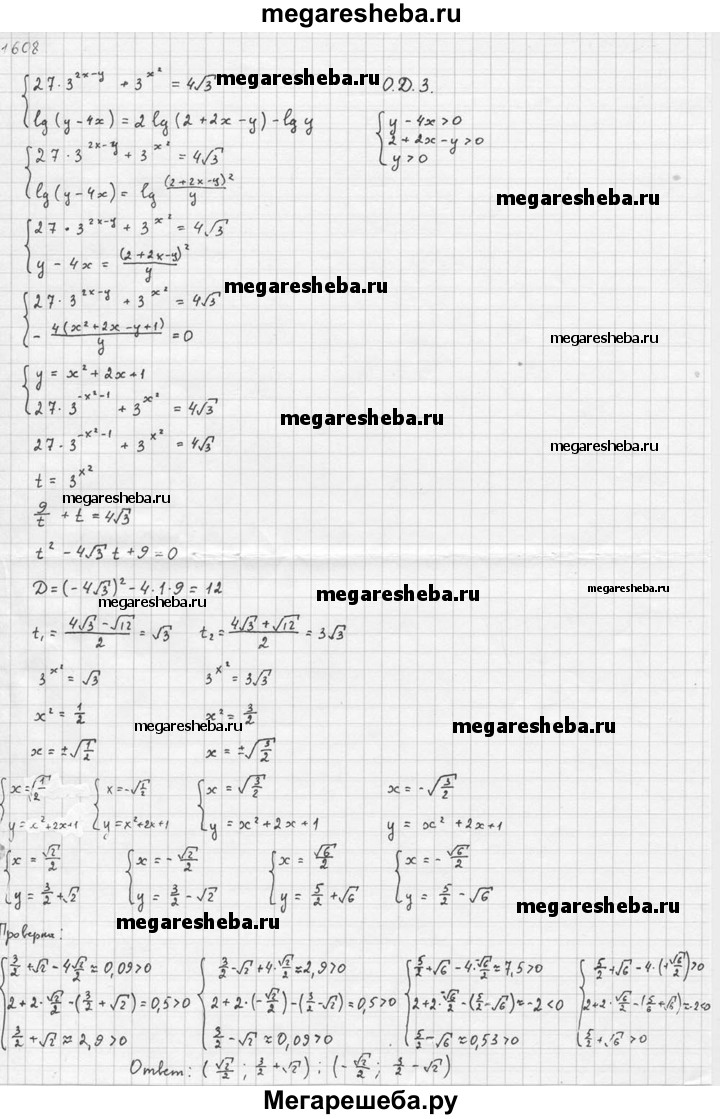 megaresheba.ru
1608
{27·3^(2x-y) + 3^(x²) = 4√3 megaresheba.ru О.Д.З.
{lg(y-4x) = 2lg(2+2x-y) - lg y {y-4x>0
{2+2x-y>0
{27·3^(2x-y) + 3^(x²) = 4√3 {y>0
{lg(y-4x) = lg (2+2x-y)²/y megaresheba.ru
{27·3^(2x-y) + 3^(x²) = 4√3
{y-4x = (2+2x-y)²/y
megaresheba.ru
{27·3^(2x-y) + 3^(x²) = 4√3
{- 4(x²+2x-y+1)/y = 0 megaresheba.ru
{y = x²+2x+1
{27·3^(-x²-1) + 3^(x²) = 4√3 megaresheba.ru
27·3^(-x²-1) + 3^(x²) = 4√3 megaresheba.ru
t = 3^(x²)
megaresheba.ru
9/t + t = 4√3
t² - 4√3 t + 9 = 0
D = (-4√3)² - 4·1·9 = 12 megaresheba.ru megaresheba.ru
megaresheba.ru
t₁ = (4√3 - √12)/2 = √3 t₂ = (4√3 + √12)/2 = 3√3
3^(x²) = √3 3^(x²) = 3√3
x² = 1/2 x² = 3/2
megaresheba.ru megaresheba.ru
x = ±√(1/2) x = ±√(3/2)
{x = √(1/2) {x = -√(1/2) {x = √(3/2) x = -√(3/2)
{y = x²+2x+1 {y = x²+2x+1 {y = x²+2x+1 y = x²+2x+1
{x = √2/2 {x = -√2/2 {x = √6/2 {x = -√6/2
{y = 3/2+√2 {y = 3/2-√2 {y = 5/2+√6 {y = 5/2-√6
megaresheba.ru
Проверка: megaresheba.ru
{3/2+√2-4√2/2≈0,09>0 {3/2-√2+4·√2/2≈2,9>0 {5/2+√6-4·-√6/2≈7,5>0 {5/2+√6-4·(+√6/2)>0
{2+2·√2/2-(3/2+√2)=0,5>0 {2+2·(-√2/2)-(3/2-√2)=0,5>0 {2+2·-√6/2-(5/2-√6)≈-2<0 {2+2·√6/2-(5/6+√6)≈-2<0
{3/2+√2≈2,9>0 {3/2-√2≈0,09>0 {5/2-√6≈0,53>0 {5/2+√6>0
Ответ: (√2/2; 3/2+√2); (-√2/2; 3/2-√2)
Мегарешеба.ру